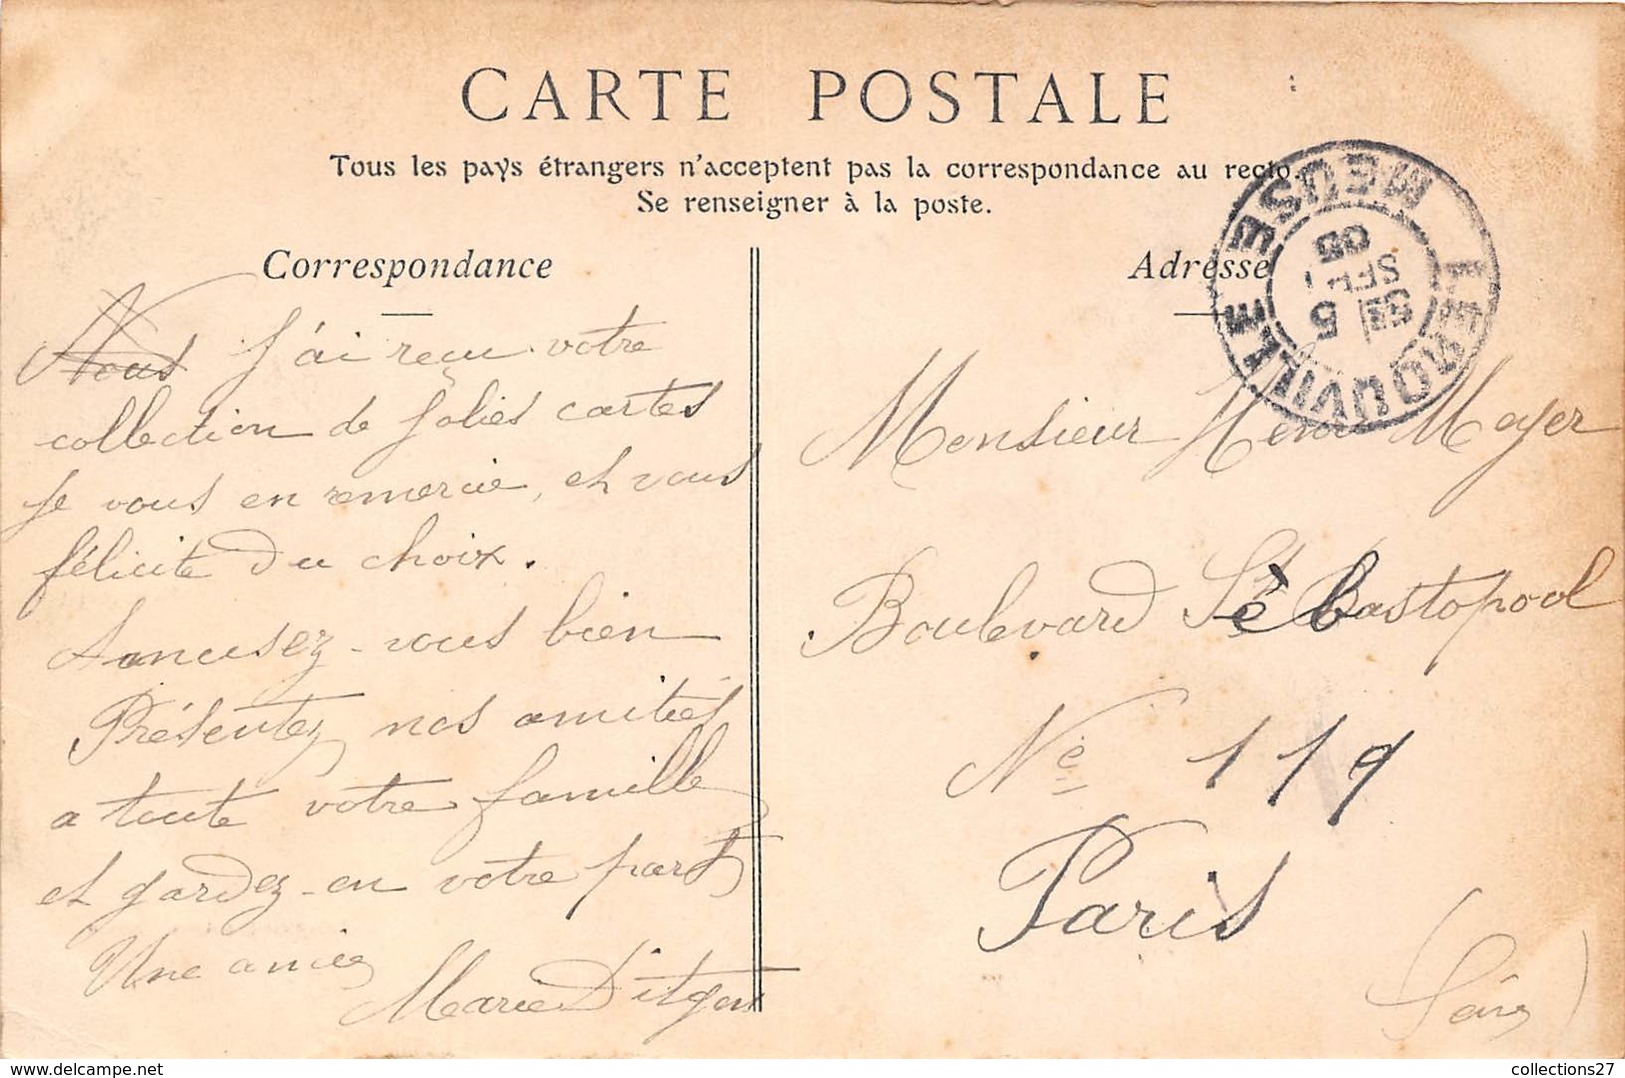 CARTE POSTALE
Tous les pays étrangers n'acceptent pas la correspondance au recto.
Se renseigner à la poste.
Correspondance
Nous J'ai reçu votre
collection de jolies cartes
je vous en remercie, et vous
félicite du choix.
Amusez-vous bien
Présentez nos amitiés
a toute votre famille
et gardez-en votre part
Une amie
Marie
Adresse
Monsieur Henri Meyer
Boulevard Sébastopool
No 119
Paris
(Seine)
LEROUVILLE MEUSE
5
SEPT
05
collections27